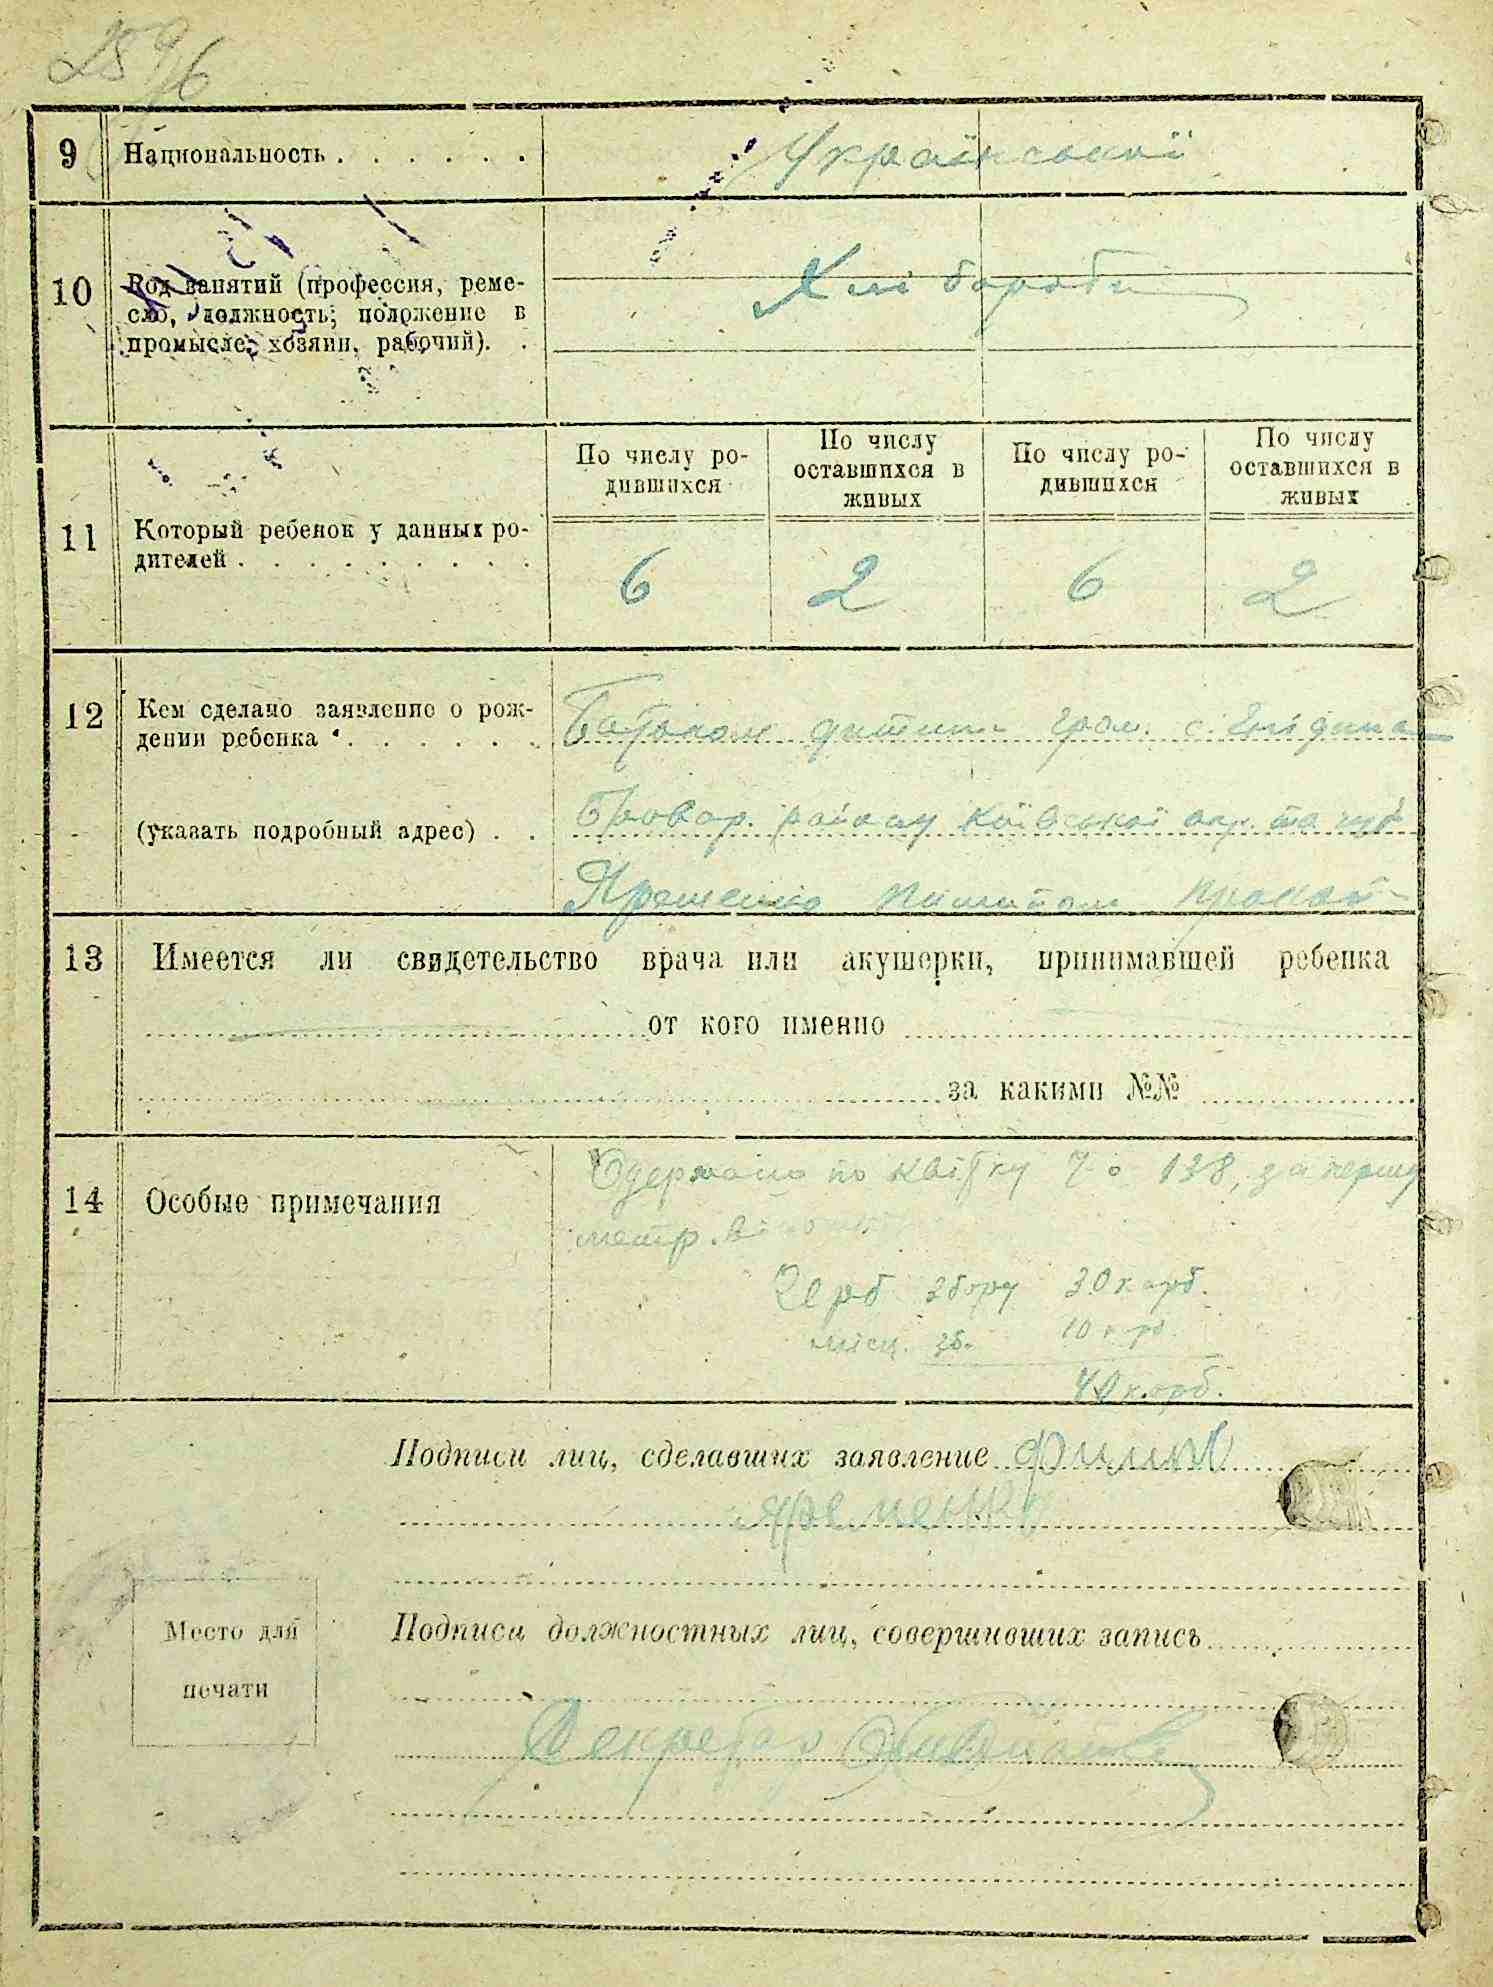 9 Национальность . . . . . . Української
10 Род занятий (профессия, реме-
сло, должность; положение в
промысле; хозяин, рабочий). .
Хлібороби
11 Который ребенок у данных ро-
дителей . . . . . . . . . .
По числу ро-
дившихся
По числу
оставшихся в
живых
По числу ро-
дившихся
По числу
оставшихся в
живых
6 2 6 2
12 Кем сделано заявление о рож-
дении ребенка . . . . . . .
(указать подробный адрес) . .
Батьком дитини гром. с.
Бровар. району Київської окр.
13 Имеется ли свидетельство врача или акушерки, принимавшей ребенка
от кого именно
за какими №№
14 Особые примечания
Одержано по квітку 138, за першу
метр.
Герб збору 30 карб.
місц. зб. 10
40 к.
Подписи лиц, сделавших заявление Филип
Яременко
Подписи должностных лиц, совершивших запись
Место для
печати
Секретар